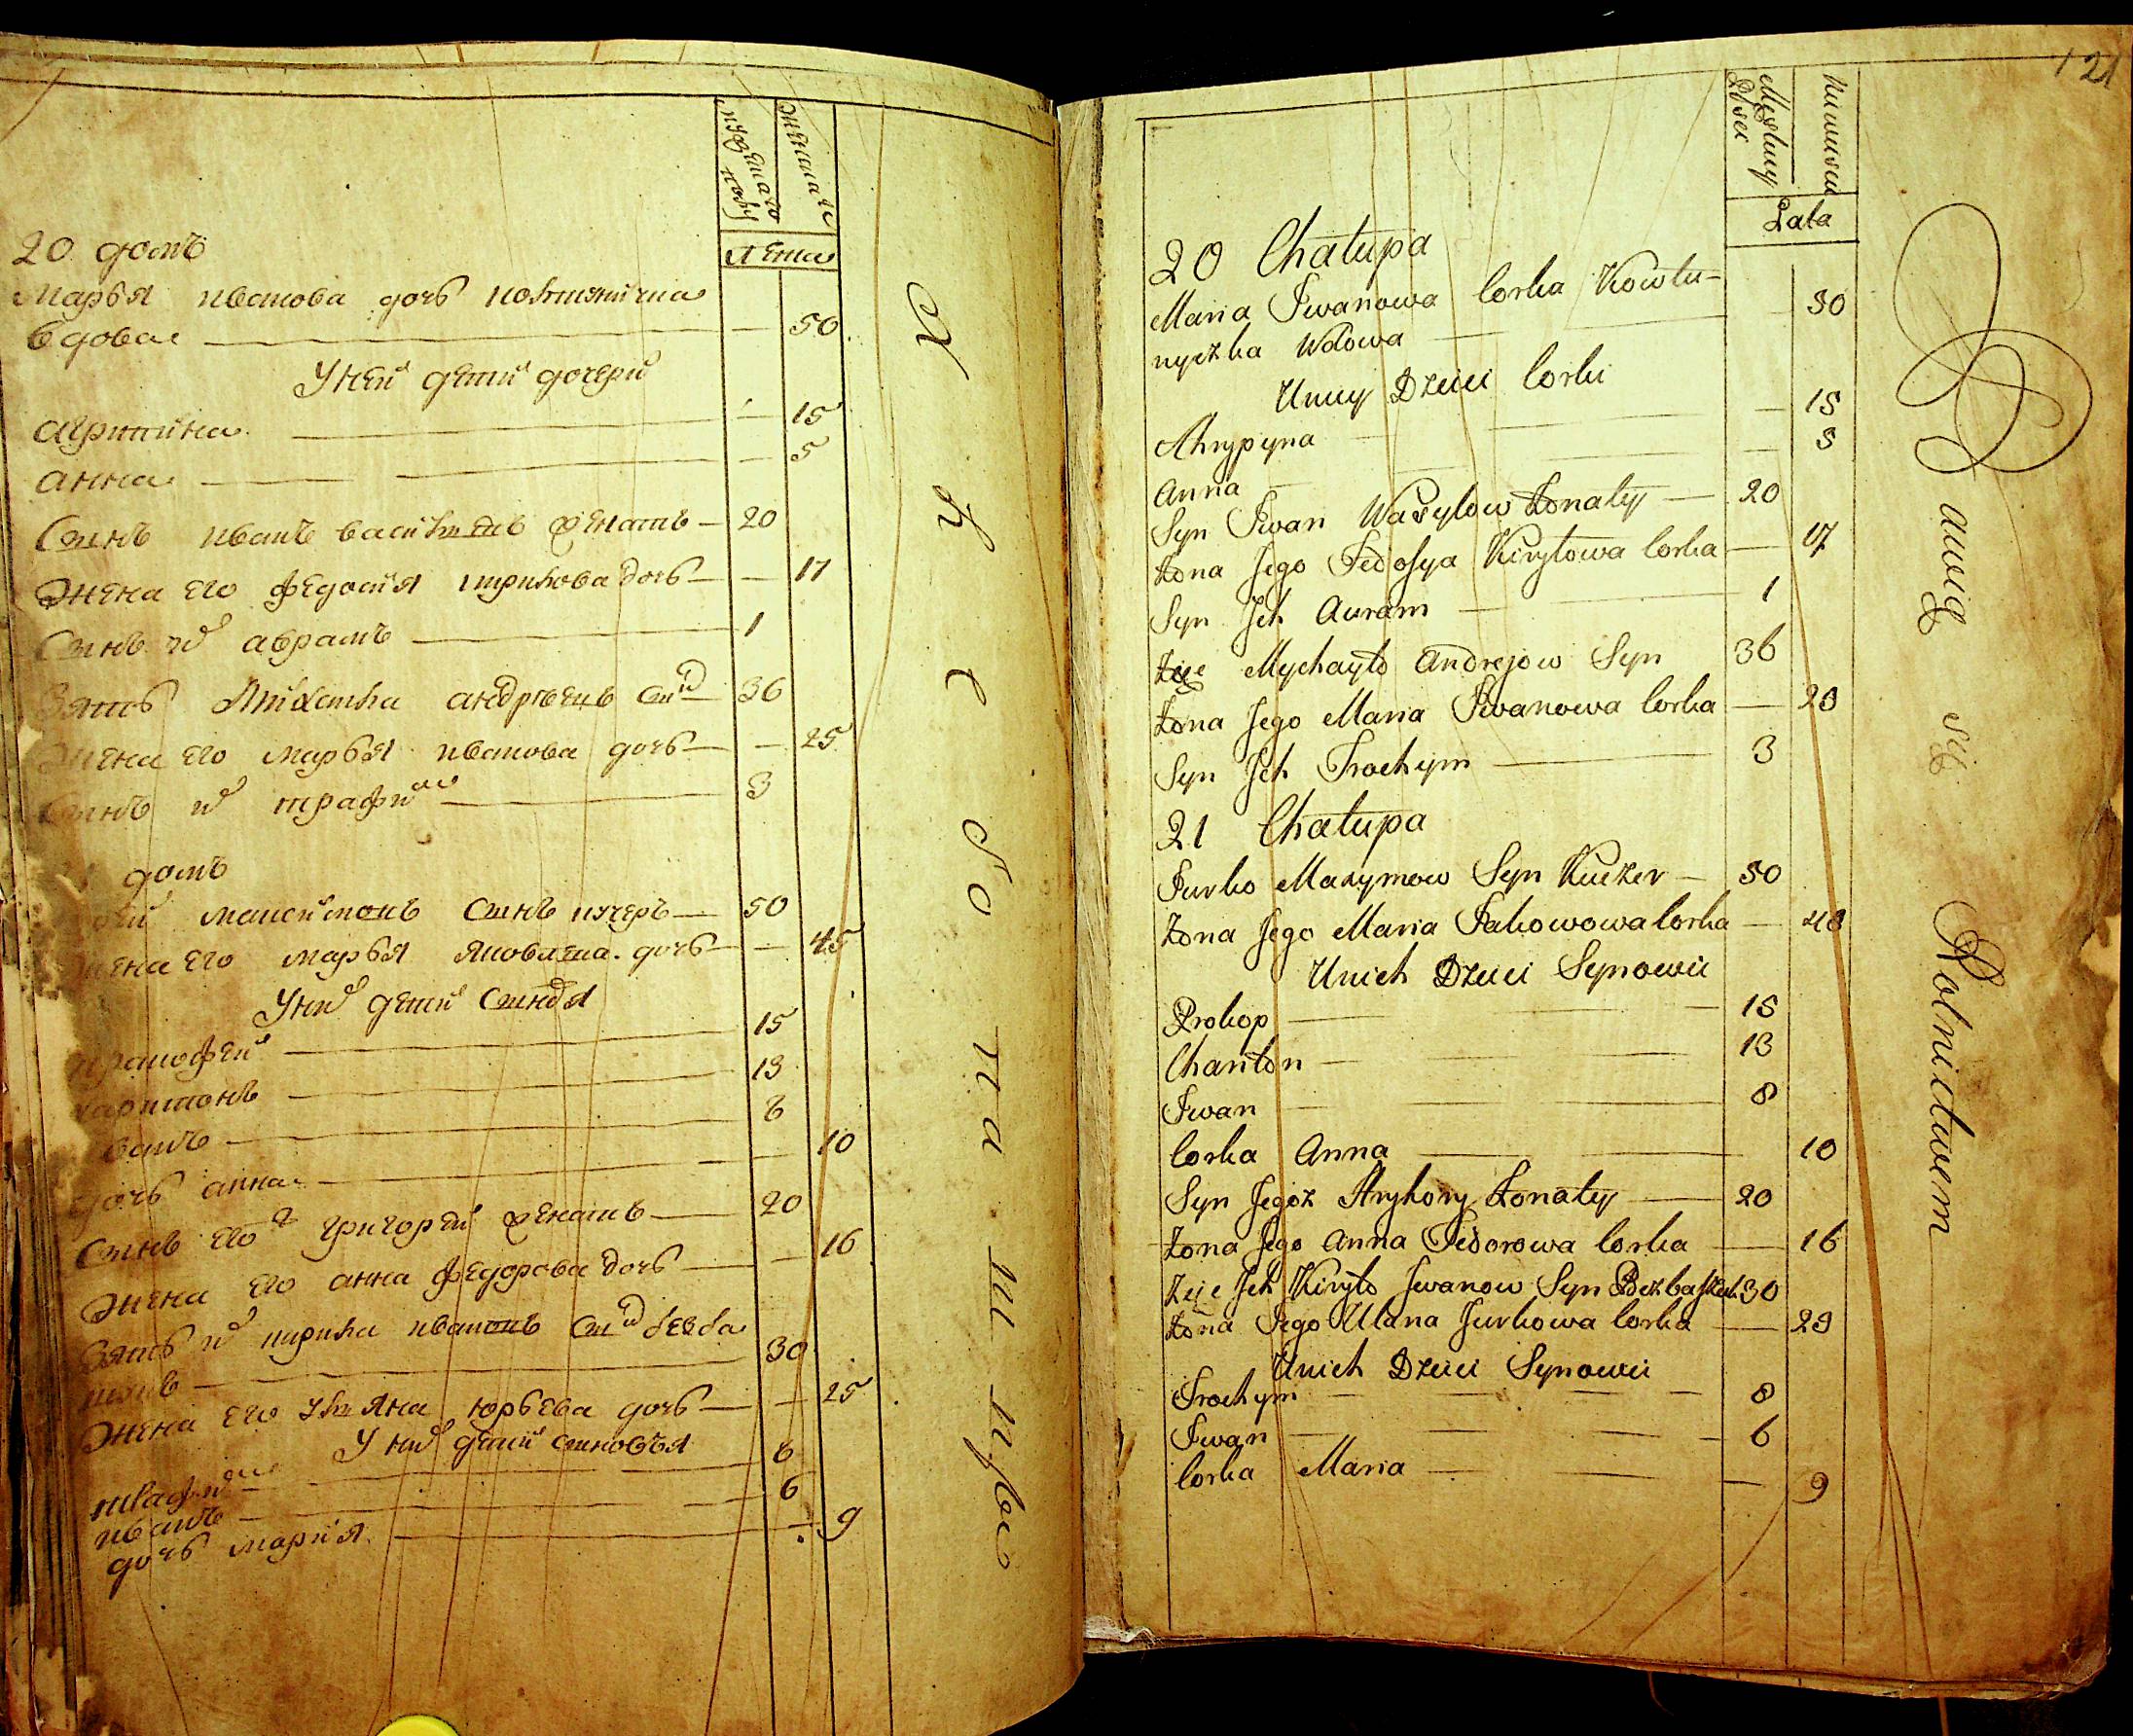 мужеска
полу
женска
лета
20 домъ
Марья иванова дочь
вдова — 50
У ней дети дочери
агрипина — 15
анна — 5
Сынъ иванъ васильевъ женатъ — 20
Жена его федосия кирилова дочь — 17
Сынъ их аврамъ — 1
Зять Михаила андреевъ сын — 36
Жена его марья иванова дочь — 25
Сынъ их трафим — 3
домъ
максимовъ сынъ кучеръ — 50
жена его марья яковлева дочь — 45
У них дети сыновья
прокофей — 15
харитонъ — 13
иванъ — 8
дочь анна — 10
Сынъ его ж григорей женатъ — 20
Жена его анна федорова дочь — 16
Зять их кирила ивановъ сын безба
— 30
Жена его ульяна юрьева дочь — 25
У них дети сыновья
трафим — 8
иванъ — 6
дочь мария — 9
121
Męskiey
Płci
Lata
20 Chałupa
Maria Iwanowa Corka Kowtu-
nyczka Wdowa — 50
U niey Dzieci Corki
Ahrypyna — 15
Anna — 5
Syn Iwan Wasylow Żonaty — 20
Żona Jego Fedosya Kiryłowa Corka — 17
Syn Ich Auram — 1
Zięć Mychayło Andrejow Syn 36
Żona Jego Maria Iwanowa Corka — 25
Syn Ich Trochym — 3
21 Chałupa
Jurko Maxymow Syn Kuczer — 50
Żona Jego Maria Jakowowa Corka — 45
U nich Dzieci Synowie
Prokop — 15
Chariton — 13
Iwan — 8
Corka Anna — 10
Syn Jegoż Hryhory Żonaty — 20
Żona Jego Anna Fedorowa Corka — 16
Zięć Ich Kiryło Iwanow Syn 30
Żona Jego Ulana Jurkowa Corka — 25
U nich Dzieci Synowie
Trochym — 8
Iwan — 6
Corka Maria — 9
Bawią się Rolnictwem